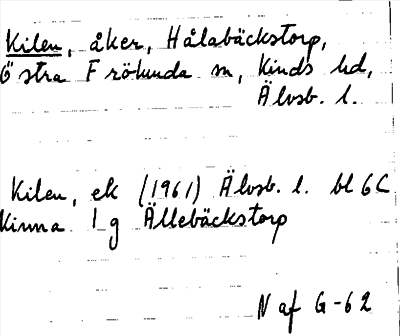 Kilen, åker, Hålabäckstorp,
Östra Frölunda sn, Kinds hd,
Älvsb. l.
Kilen, ek (1961) Älvsb. l. bl 6C
Kinna 1 g Ällebäckstorp
N af G-62